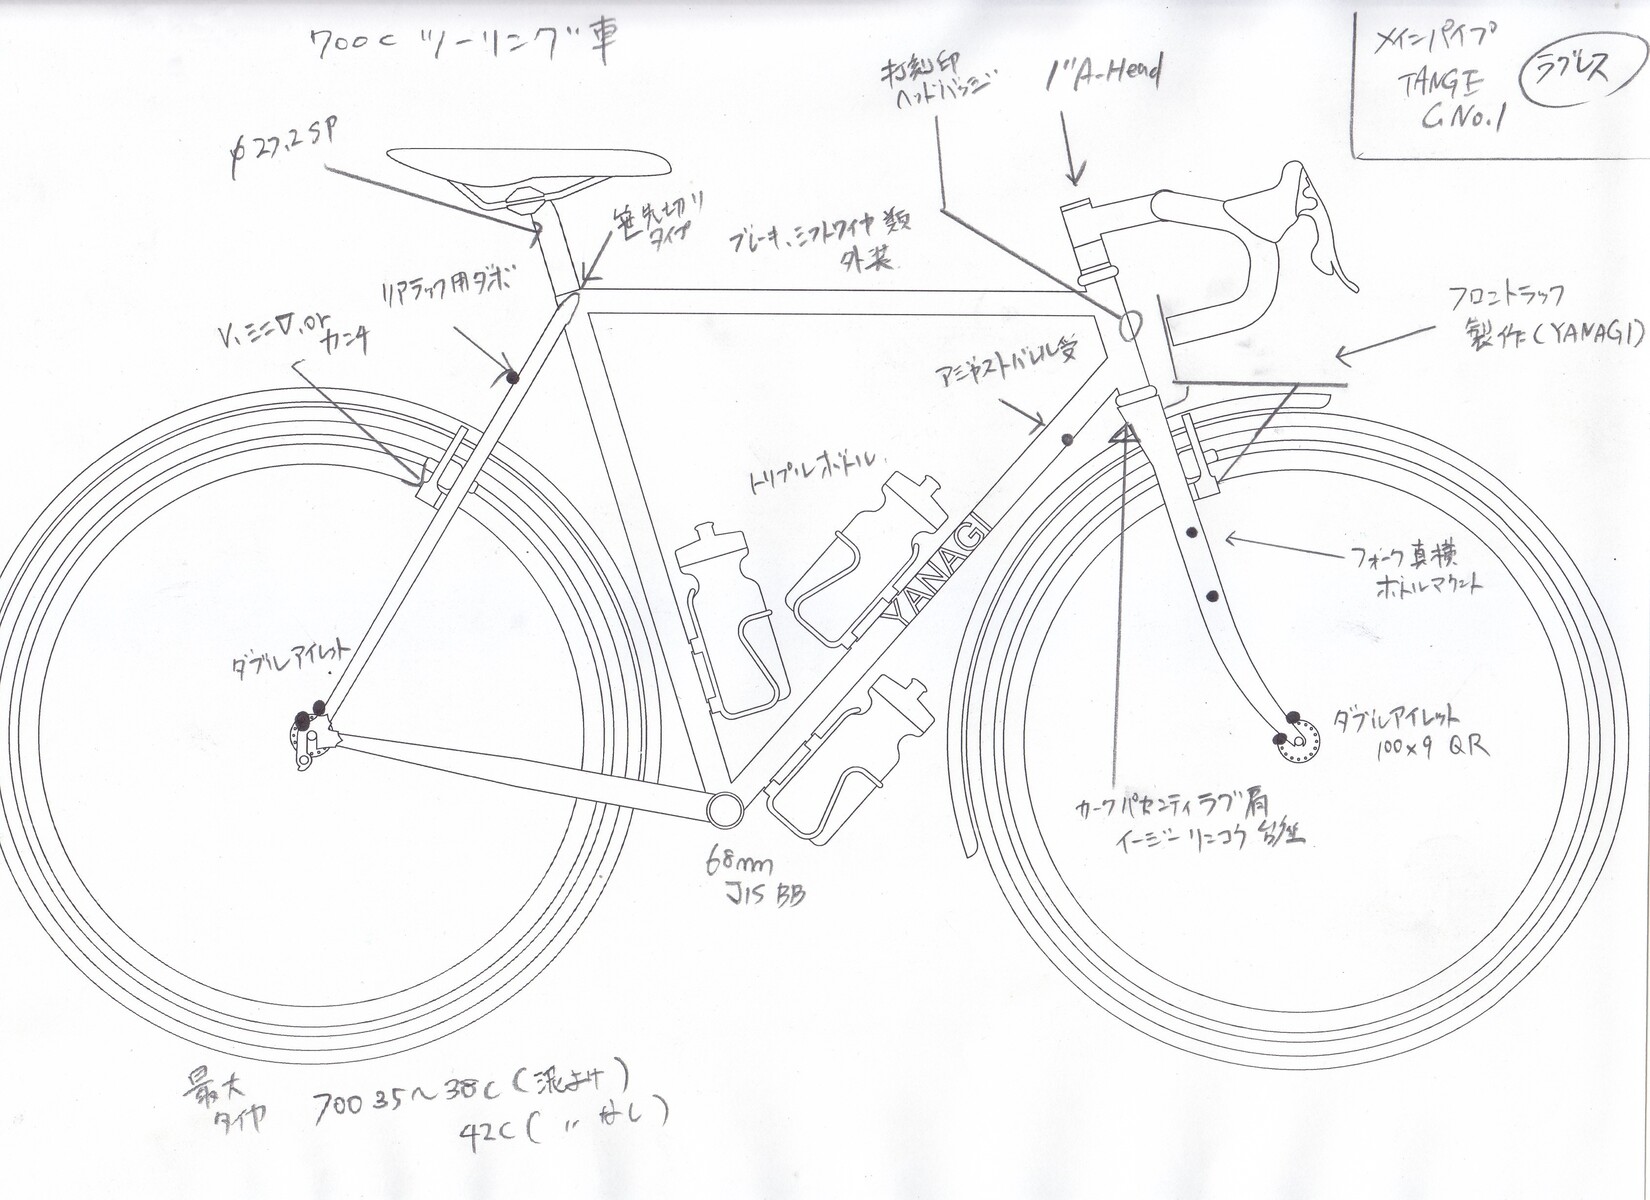 700c ツーリング車
打刻印
ヘッドバッジ
1"A-Head
メインパイプ
TANGE
C No.1
ラグレス
φ27.2 SP
笹先切り
タイプ
ブレーキ、シフトワイヤ類
外装
リアラック用ダボ
V、ミニV、or
カンチ
フロントラック
製作(YANAGI)
アジャストバレル受
トリプルボトル
YANAGI
フォーク真横
ボトルマウント
ダブルアイレット
ダブルアイレット
100×9 QR
カーク パセンティ ラグ肩
イージーリンコウ台座
68mm
JIS BB
最大
タイヤ
700 35〜38c (泥よけ)
42c ( 〃 なし)